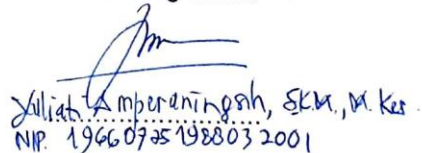 Yuliati Amperaningsih, SKM., M.Kes.
NIP. 196607251988032001